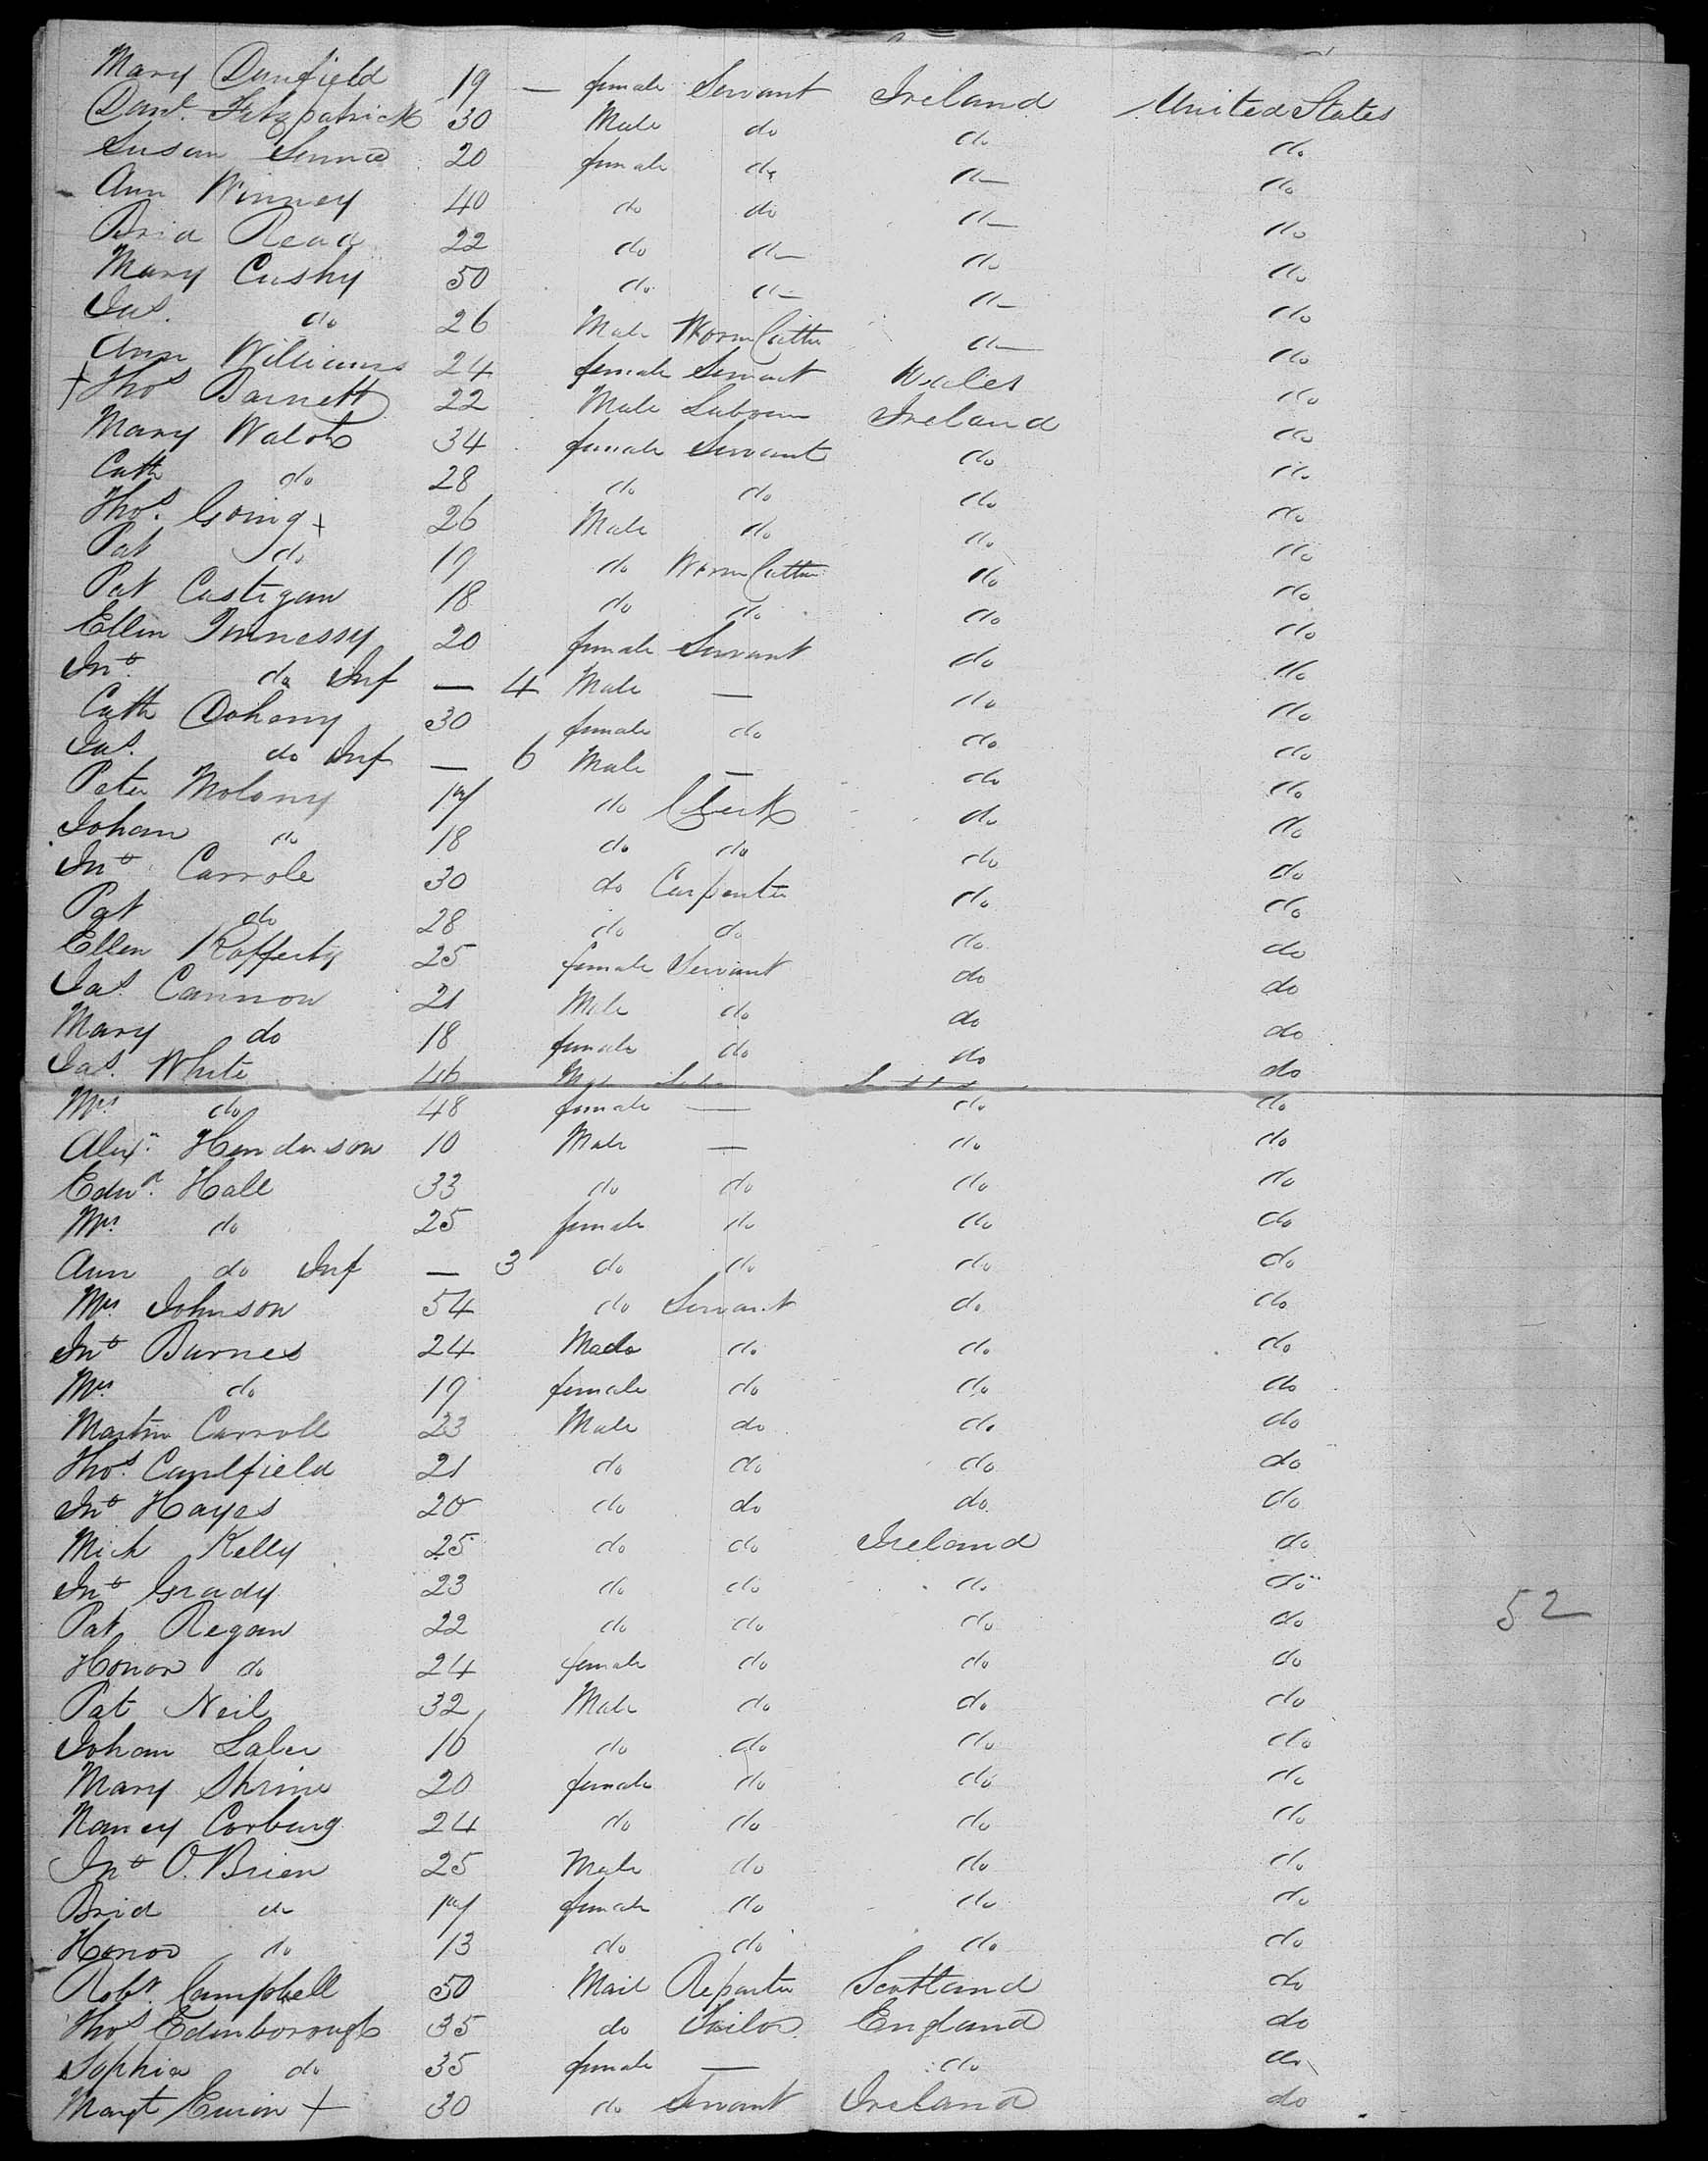 Mary Dunfield 19 — female Servant Ireland United States
Danl. Fitzpatrick 30 Male do do do
Susan 20 female do do do
Ann Winney 40 do do do do
Brid Read 22 do do do do
Mary Cushy 50 do do do do
Jas. do 26 Male do do
Ann Williams 24 female Servant Wales do
+ Thos Barnett 22 Male Labourer Ireland do
Mary Walsh 34 female Servant do do
Cath do 28 do do do do
Thos. Going + 26 Male do do do
Pat do 19 do do do
Pat Costigan 18 do do do do
Ellen Innessy 20 female Servant do do
Jno. do Inf — 4 Male — do do
Cath Doheny 30 female do do do
Jas. do Inf — 6 Male — do do
Peter Molony 17 do Clerk do do
Johan do 18 do do do do
Jno. Carrole 30 do Carpenter do do
Pat do 28 do do do do
Ellen Rafferty 25 female Servant do do
Jas. Cannon 21 Male do do do
Mary do 18 female do do do
Jas. White 46 do
Mrs do 48 female — do do
Alexr. Henderson 10 Male — do do
Edwd. Hall 33 do do do do
Mrs do 25 female do do do
Ann do Inf — 3 do do do do
Mrs Johnson 54 do Servant do do
Jno Burnes 24 Male do do do
Mrs do 19 female do do do
Martin Carroll 23 Male do do do
Thos. Caulfield 21 do do do do
Jno Hayes 20 do do do do
Mich Kelly 25 do do Ireland do
Jno Grady 23 do do do do
Pat Regan 22 do do do do
52
Honor do 24 female do do do
Pat Neil 32 Male do do do
Johan Laler 16 do do do do
Mary Shrine 20 female do do do
Nancy Corburg 24 do do do do
Jno O.Brien 25 Male do do do
Brid do 17 female do do do
Honor do 13 do do do do
Robt. Campbell 50 Mail Reporter Scotland do
Thos Edinborough 35 do Tailor England do
Sophia do 35 female — do do
Margt + 30 do Servant Ireland do